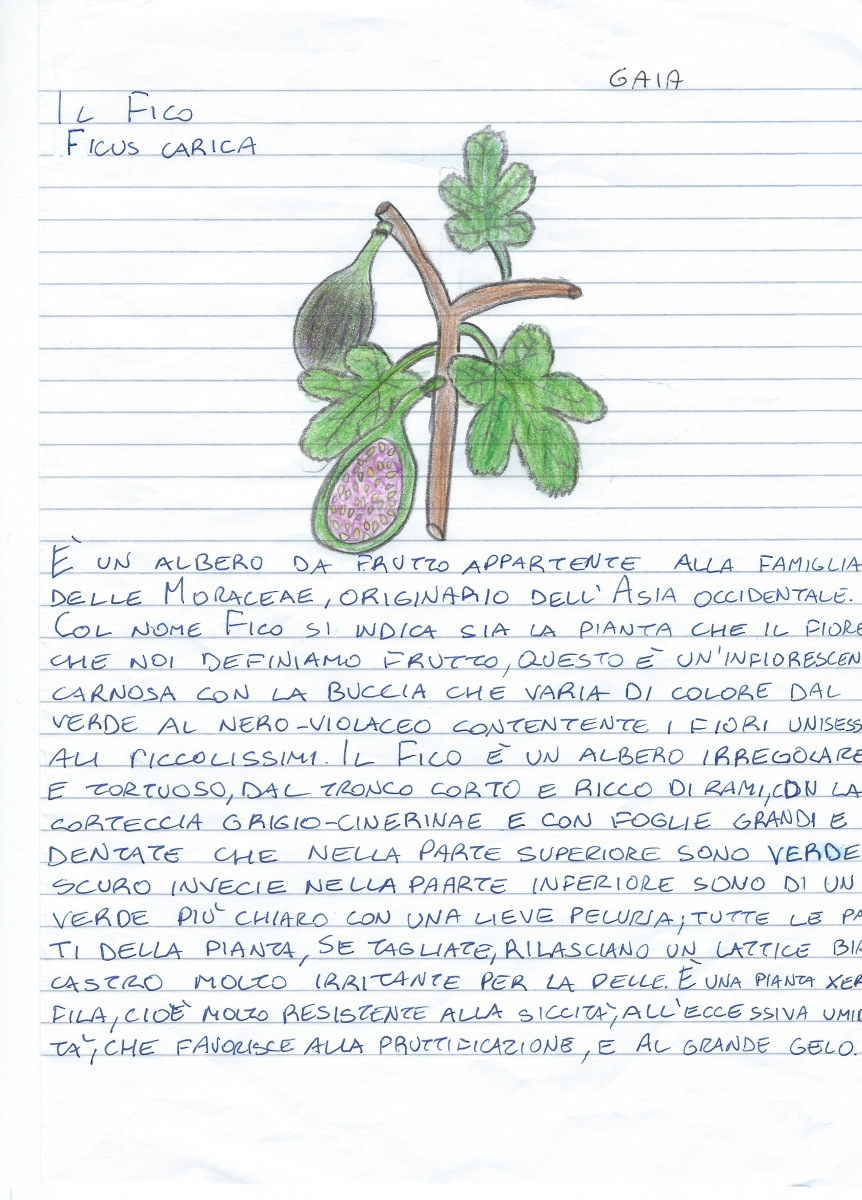 GAIA
IL FICO
FICUS CARICA
È UN ALBERO DA FRUTTO APPARTENTE ALLA FAMIGLIA
DELLE MORACEAE, ORIGINARIO DELL'ASIA OCCIDENTALE.
COL NOME FICO SI INDICA SIA LA PIANTA CHE IL FIORE
CHE NOI DEFINIAMO FRUTTO, QUESTO È UN'INFIORESCEN
CARNOSA CON LA BUCCIA CHE VARIA DI COLORE DAL
VERDE AL NERO-VIOLACEO CONTENTENTE I FIORI UNISESS
ALI PICCOLISSIMI. IL FICO È UN ALBERO IRREGOLARE
E TORTUOSO, DAL TRONCO CORTO E RICCO DI RAMI, CON LA
CORTECCIA GRIGIO-CINERINAE E CON FOGLIE GRANDI E
DENTATE CHE NELLA PARTE SUPERIORE SONO VERDE
SCURO INVECIE NELLA PAARTE INFERIORE SONO DI UN
VERDE PIÙ CHIARO CON UNA LIEVE PELURIA; TUTTE LE PA
TI DELLA PIANTA, SE TAGLIATE, RILASCIANO UN LATTICE BIA
CASTRO MOLTO IRRITANTE PER LA PELLE. È UNA PIANTA XER
FILA, CIOÈ MOLTO RESISTENTE ALLA SICCITÀ, ALL'ECCESSIVA UMID
TÀ, CHE FAVORISCE ALLA FRUTTIFICAZIONE, E AL GRANDE GELO.